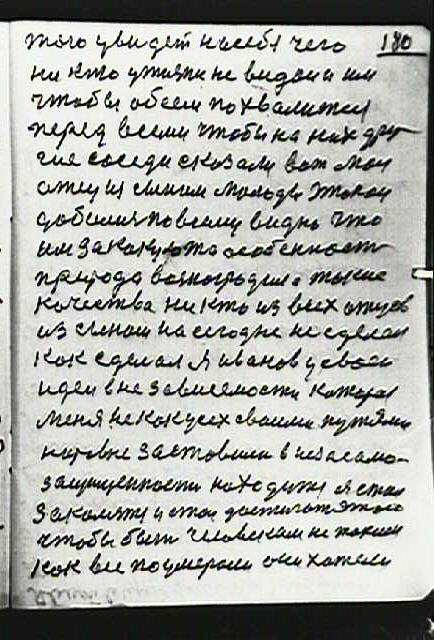 того увидет насебя чего 180
ни кто ужизни не видал и им
чтобы обоем похвалится
перед всеми чтобы на них дру
гие соседи сказали вот мол
отец из сыном молодц этокои
добилися повсему видно что
им закокуюто особенност
природа возногродила токие
качества ни кто из всех отцов
из сыном на сегодне не сделал
как сделал я иванов у своеи
идеи в не зависемости котора
меня не кок усех своими путями
заставили в
защищенности находится я стал
закалятся и стал достигат этого
чтобы быть человеком не токим
как все поумерали они хотели